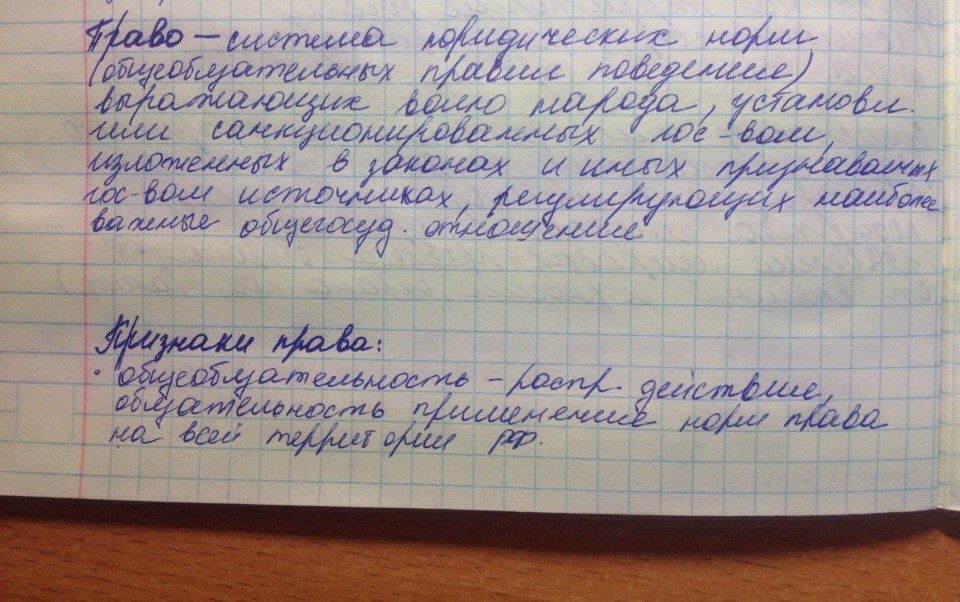 Право – система юридических норм
(общеобязательных правил поведения)
выражающих волю народа, установл.
или санкционированных гос-вом,
изложенных в законах и иных признаваемых
гос-вом источниках, регулирующих наиболее
важные общегосуд. отношения
Признаки права:
· общеобязательность – распр. действие,
обязательность применение норм права
на всей территории РФ.